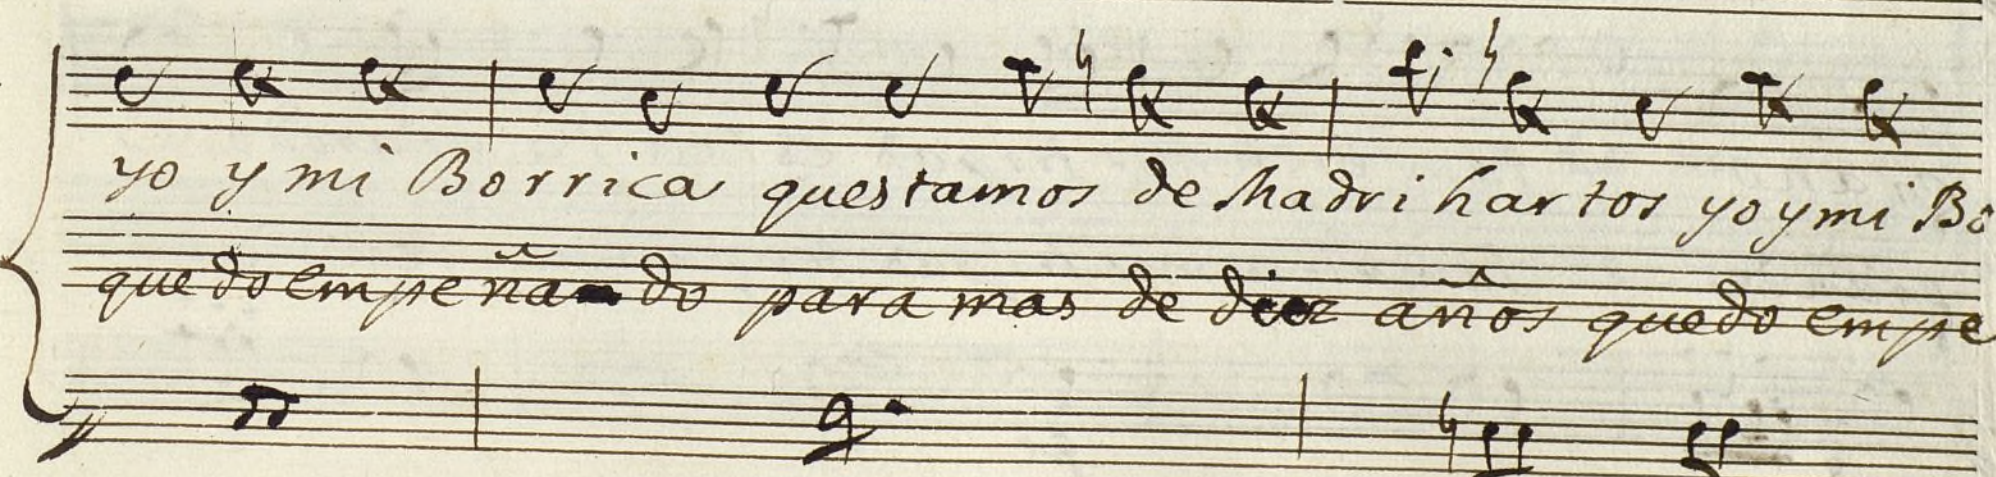 yo y mi Borrica questamos de Madri hartos yo y mi Bo
quedo empeñado para mas de diez años quedo empe